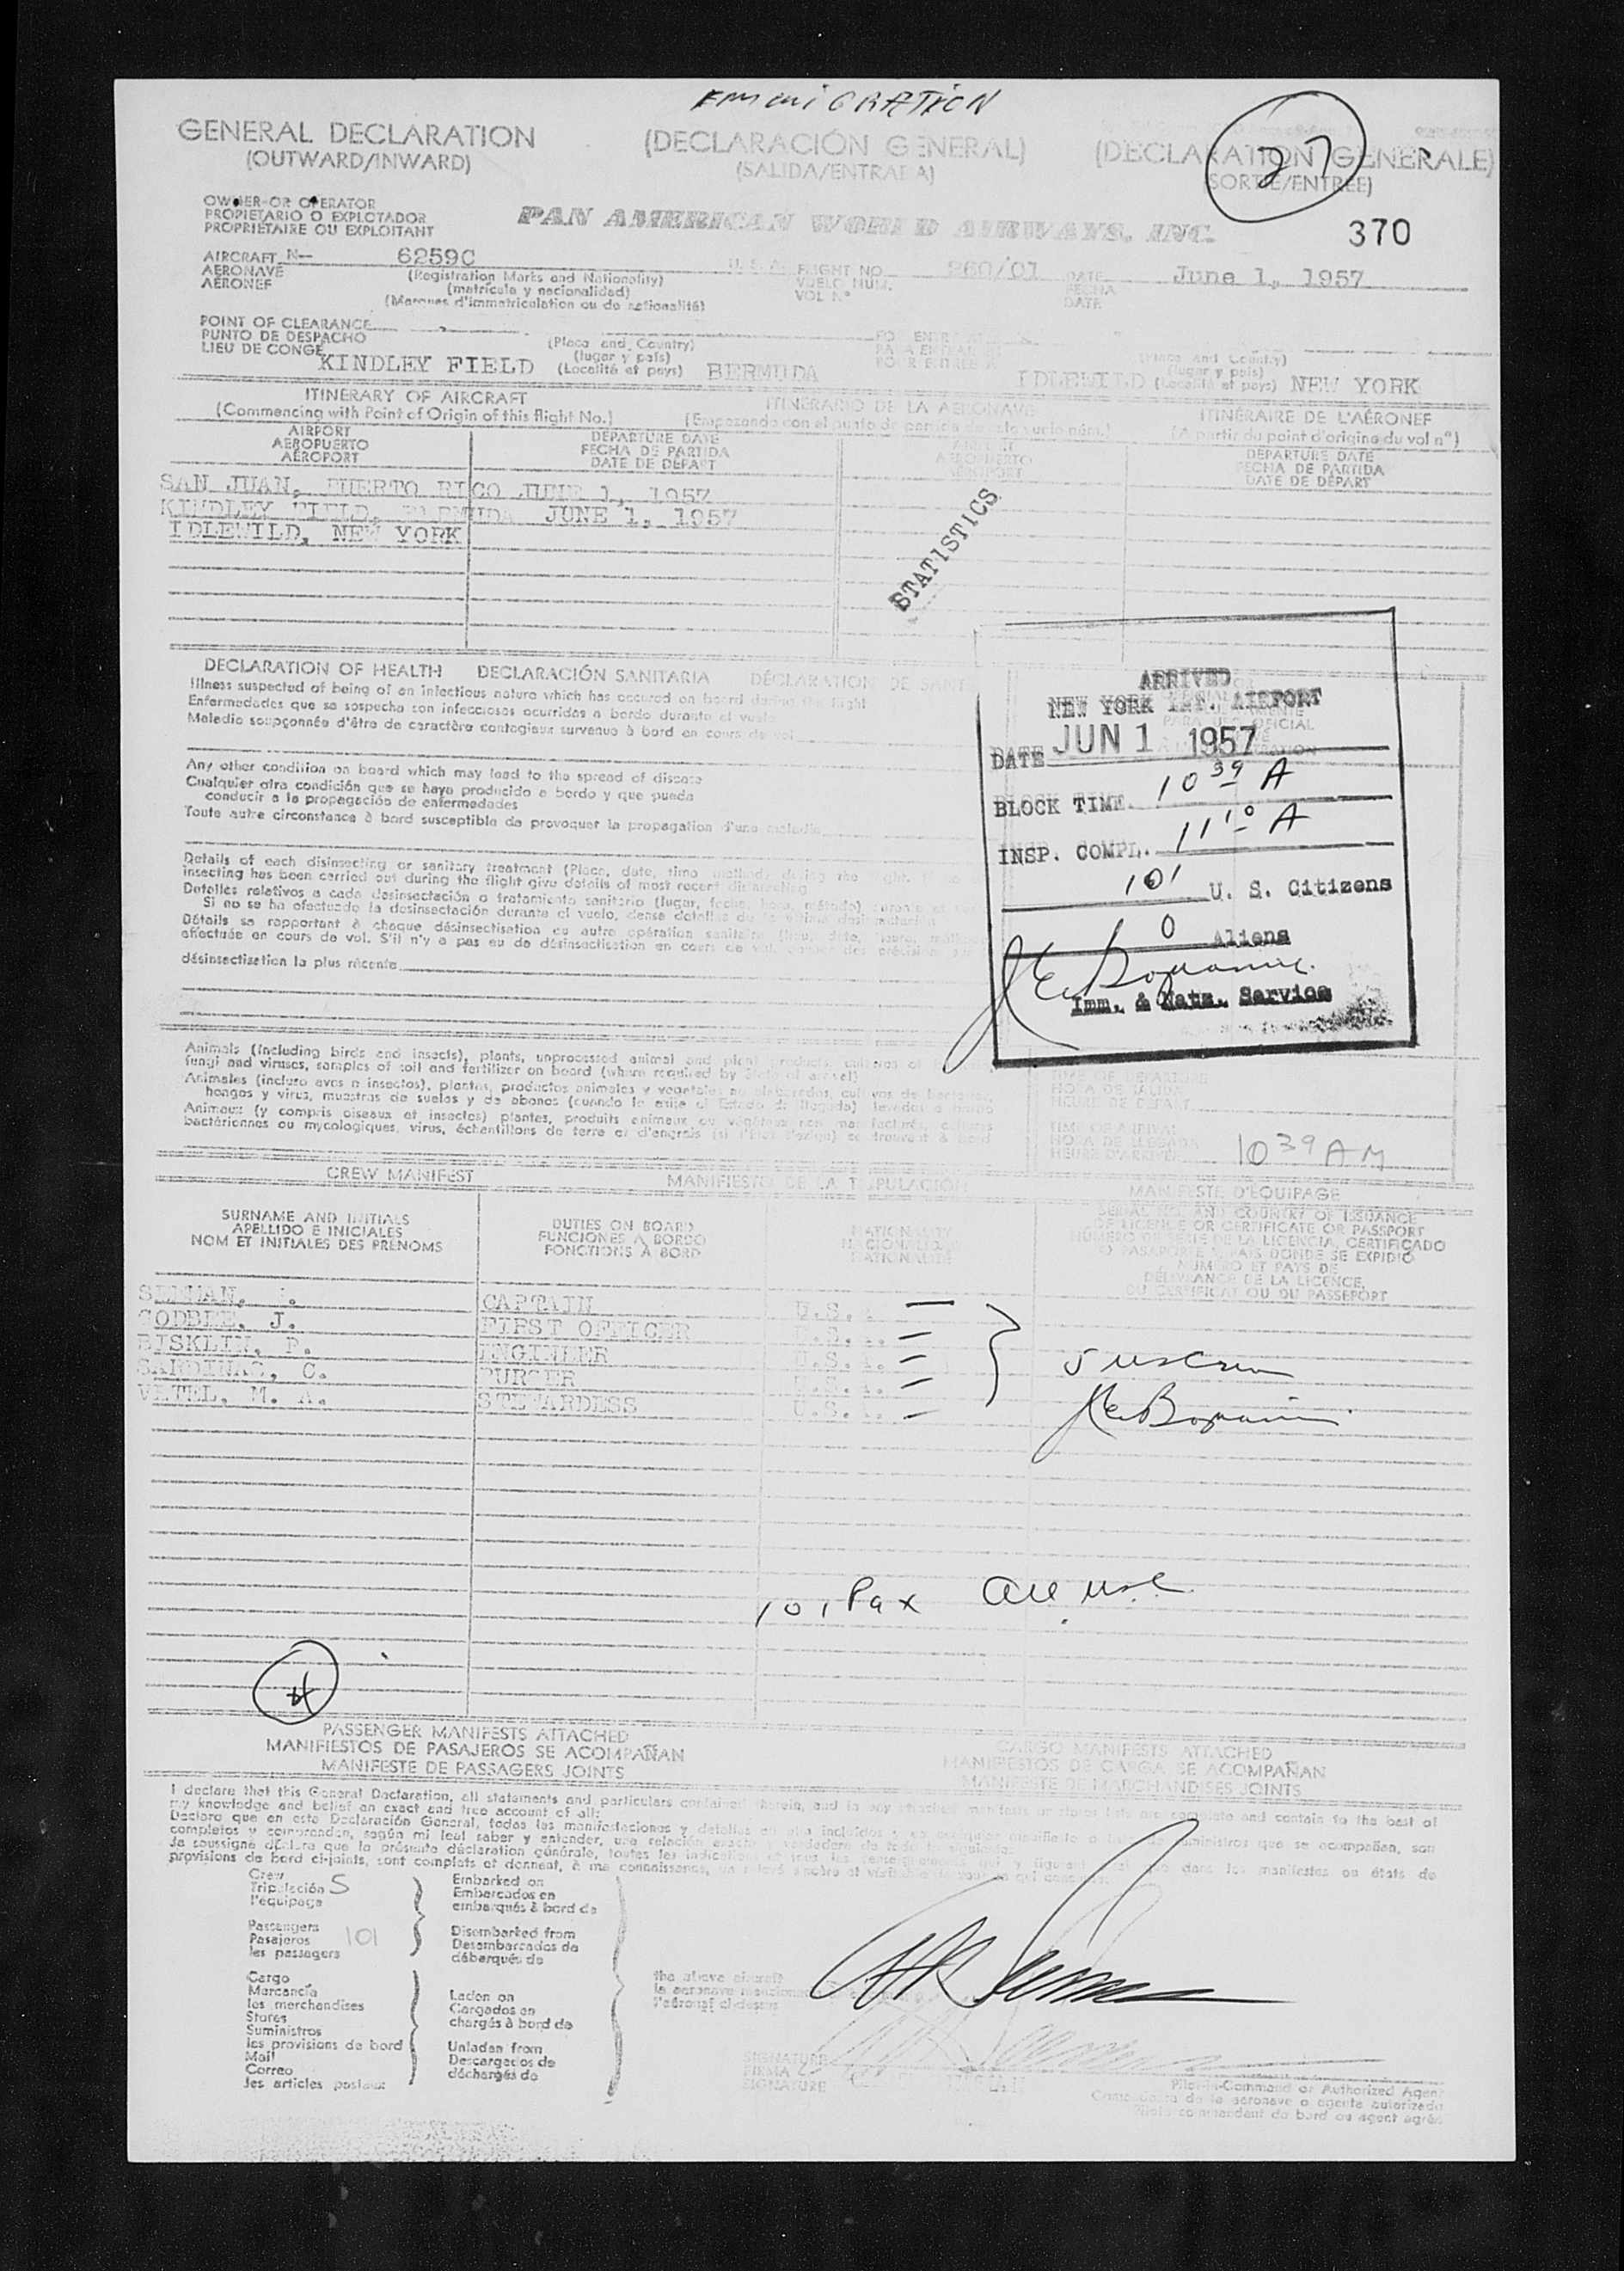 EmmiGRATION
GENERAL DECLARATION
(OUTWARD/INWARD)
(DECLARACIÓN GENERAL)
(SALIDA/ENTRADA)
(DECLARATION GENERALE)
(SORTIE/ENTRÉE)
27
OWNER OR OPERATOR
PROPIETARIO O EXPLOTADOR
PROPRIÉTAIRE OU EXPLOITANT
PAN AMERICAN WORLD AIRWAYS, INC.
370
AIRCRAFT N- 6259C U.S.A. FLIGHT NO. 260/01 DATE June 1, 1957
AERONAVE (Registration Marks and Nationality) VUELO NÚM. FECHA
AÉRONEF (matrícula y nacionalidad) VOL N° DATE
(Marques d'immatriculation ou de nationalité)
POINT OF CLEARANCE
PUNTO DE DESPACHO (Place and Country)
LIEU DE CONGÉ KINDLEY FIELD (lugar y país) (Localité et pays) BERMUDA
IDLEWILD (Place and Country) (lugar y país) (Localité et pays) NEW YORK
ITINERARY OF AIRCRAFT ITINERARIO DE LA AERONAVE ITINÉRAIRE DE L'AÉRONEF
(Commencing with Point of Origin of this flight No.) (Empezando con el punto de partida de este vuelo núm.) (A partir du point d'origine du vol n°)
AIRPORT DEPARTURE DATE DEPARTURE DATE
AEROPUERTO FECHA DE PARTIDA AEROPUERTO FECHA DE PARTIDA
AÉROPORT DATE DE DÉPART AÉROPORT DATE DE DÉPART
SAN JUAN, PUERTO RICO JUNE 1, 1957
KINDLEY FIELD, BERMUDA JUNE 1, 1957
IDLEWILD, NEW YORK
STATISTICS
DECLARATION OF HEALTH DECLARACIÓN SANITARIA DÉCLARATION DE SANTÉ
Illness suspected of being of an infectious nature which has occured on board during the flight
Enfermedades que se sospecha son infecciosas ocurridas a bordo durante el vuelo
Maladie soupçonnée d'être de caractère contagieux survenue à bord en cours de vol
Any other condition on board which may lead to the spread of disease
Cualquier otra condición que se haya producido a bordo y que pueda
conducir a la propagación de enfermedades
Toute autre circonstance à bord susceptible de provoquer la propagation d'une maladie
Details of each disinsecting or sanitary treatment (Place, date, time, method) during the flight.
insecting has been carried out during the flight give details of most recent disinsecting
Detalles relativos a cada desinsectación o tratamiento sanitario (lugar, fecha, hora, método)
Si no se ha efectuado la desinsectación durante el vuelo, dense detalles de la última
Détails se rapportant à chaque désinsectisation ou autre opération sanitaire
effectuée en cours de vol. S'il n'y a pas eu de désinsectisation en cours de vol,
désinsectisation la plus récente
ARRIVED
NEW YORK INT. AIRPORT
DATE JUN 1 1957
BLOCK TIME 10 39 A
INSP. COMPL. 11 10 A
101 U. S. Citizens
0 Aliens
Imm. & Natz. Service
Animals (including birds and insects), plants, unprocessed animal and plant products, cultures of
fungi and viruses, samples of soil and fertilizer on board (where required by State of arrival)
Animales (incluso aves e insectos), plantas, productos animales y vegetales no elaborados, cultivos de bacterias,
hongos y virus, muestras de suelos y de abonos (cuando lo exija el Estado de llegada) llevados a bordo
Animaux (y compris oiseaux et insectes) plantes, produits animaux ou végétaux non manufacturés,
bactériennes ou mycologiques, virus, échantillons de terre et d'engrais (si l'État l'exige) se trouvant à bord
TIME OF DEPARTURE
HORA DE SALIDA
HEURE DE DÉPART
TIME OF ARRIVAL
HORA DE LLEGADA
HEURE D'ARRIVÉE 10 39 AM
CREW MANIFEST MANIFIESTO DE LA TRIPULACIÓN MANIFESTE D'ÉQUIPAGE
SURNAME AND INITIALS
APELLIDO E INICIALES
NOM ET INITIALES DES PRÉNOMS
DUTIES ON BOARD
FUNCIONES A BORDO
FONCTIONS À BORD
NATIONALITY
NACIONALIDAD
NATIONALITÉ
SERIAL NO. AND COUNTRY OF ISSUANCE
OF LICENCE OR CERTIFICATE OR PASSPORT
NÚMERO DE SERIE DE LA LICENCIA, CERTIFICADO
O PASAPORTE Y PAÍS DONDE SE EXPIDIÓ
NUMÉRO ET PAYS DE
DÉLIVRANCE DE LA LICENCE,
DU CERTIFICAT OU DU PASSEPORT
CAPTAIN U.S.
GODBEE, J. FIRST OFFICER U.S.
BISKLIN, P. ENGINEER U.S.
C. PURSER U.S.
M. A. STEWARDESS U.S.
5 uscrew
101 Pax all usc
PASSENGER MANIFESTS ATTACHED
MANIFIESTOS DE PASAJEROS SE ACOMPAÑAN
MANIFESTE DE PASSAGERS JOINTS
CARGO MANIFESTS ATTACHED
MANIFIESTOS DE CARGA SE ACOMPAÑAN
MANIFESTE DE MARCHANDISES JOINTS
I declare that this General Declaration, all statements and particulars contained therein, and in any attached manifests are complete and contain to the best of
my knowledge and belief an exact and true account of all:
Declaro que en esta Declaración General, todas las manifestaciones y detalles en ella incluidos suministros que se acompañan, son
completos y comprenden, según mi leal saber y entender, una relación exacta y verdadera de todo
Je soussigné déclare que la présente déclaration générale, toutes les indications dans les manifestes ou états de
provisions de bord ci-joints, sont complets et donnent, à ma connaissance, un relevé sincère et véritable
Crew
Tripulación 5
l'équipage
Passengers
Pasajeros 101
les passagers
Embarked on
Embarcados en
embarqués à bord de
Disembarked from
Desembarcados de
débarqués de
Cargo
Mercancía
les merchandises
Stores
Suministros
les provisions de bord
Mail
Correo
les articles postaux
Laden on
Cargados en
chargés à bord de
Unladen from
Descargados de
déchargés de
the above aircraft
la aeronave mencionada
l'aéronef ci-dessus
SIGNATURE
FIRMA
SIGNATURE
Pilot-in-Command or Authorized Agent
Comandante de la aeronave o agente autorizado
Pilote commandant de bord ou agent agréé